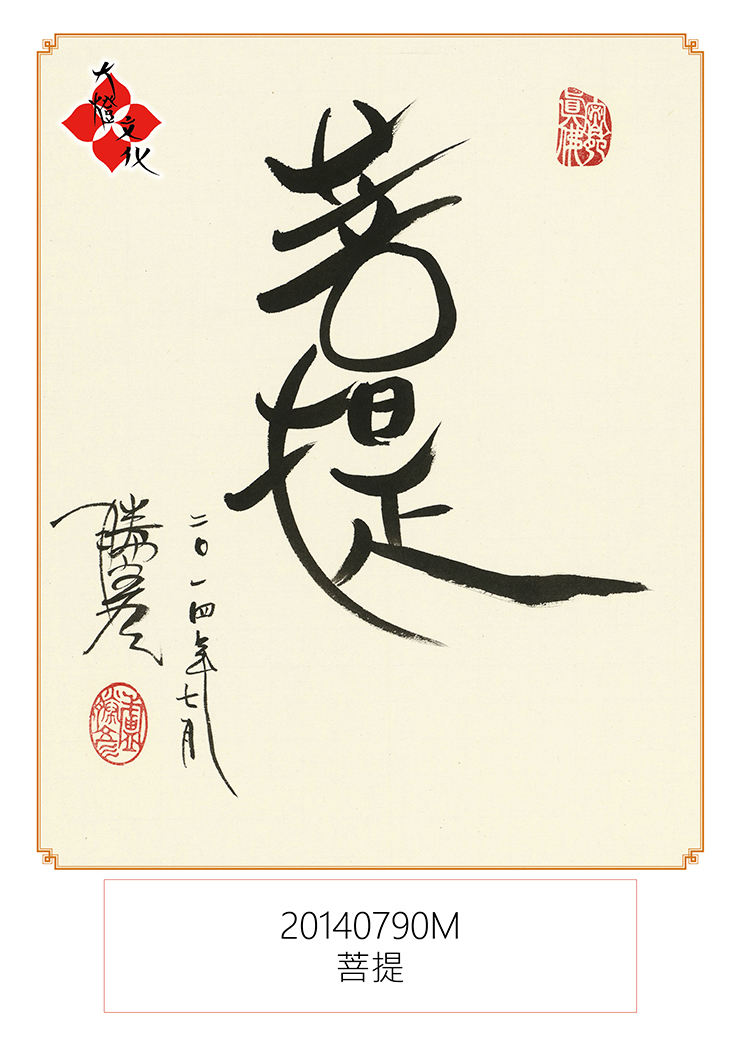 大燈文化
菩提
二〇一四年七月
勝彥
盧勝彥
20140790M
菩提